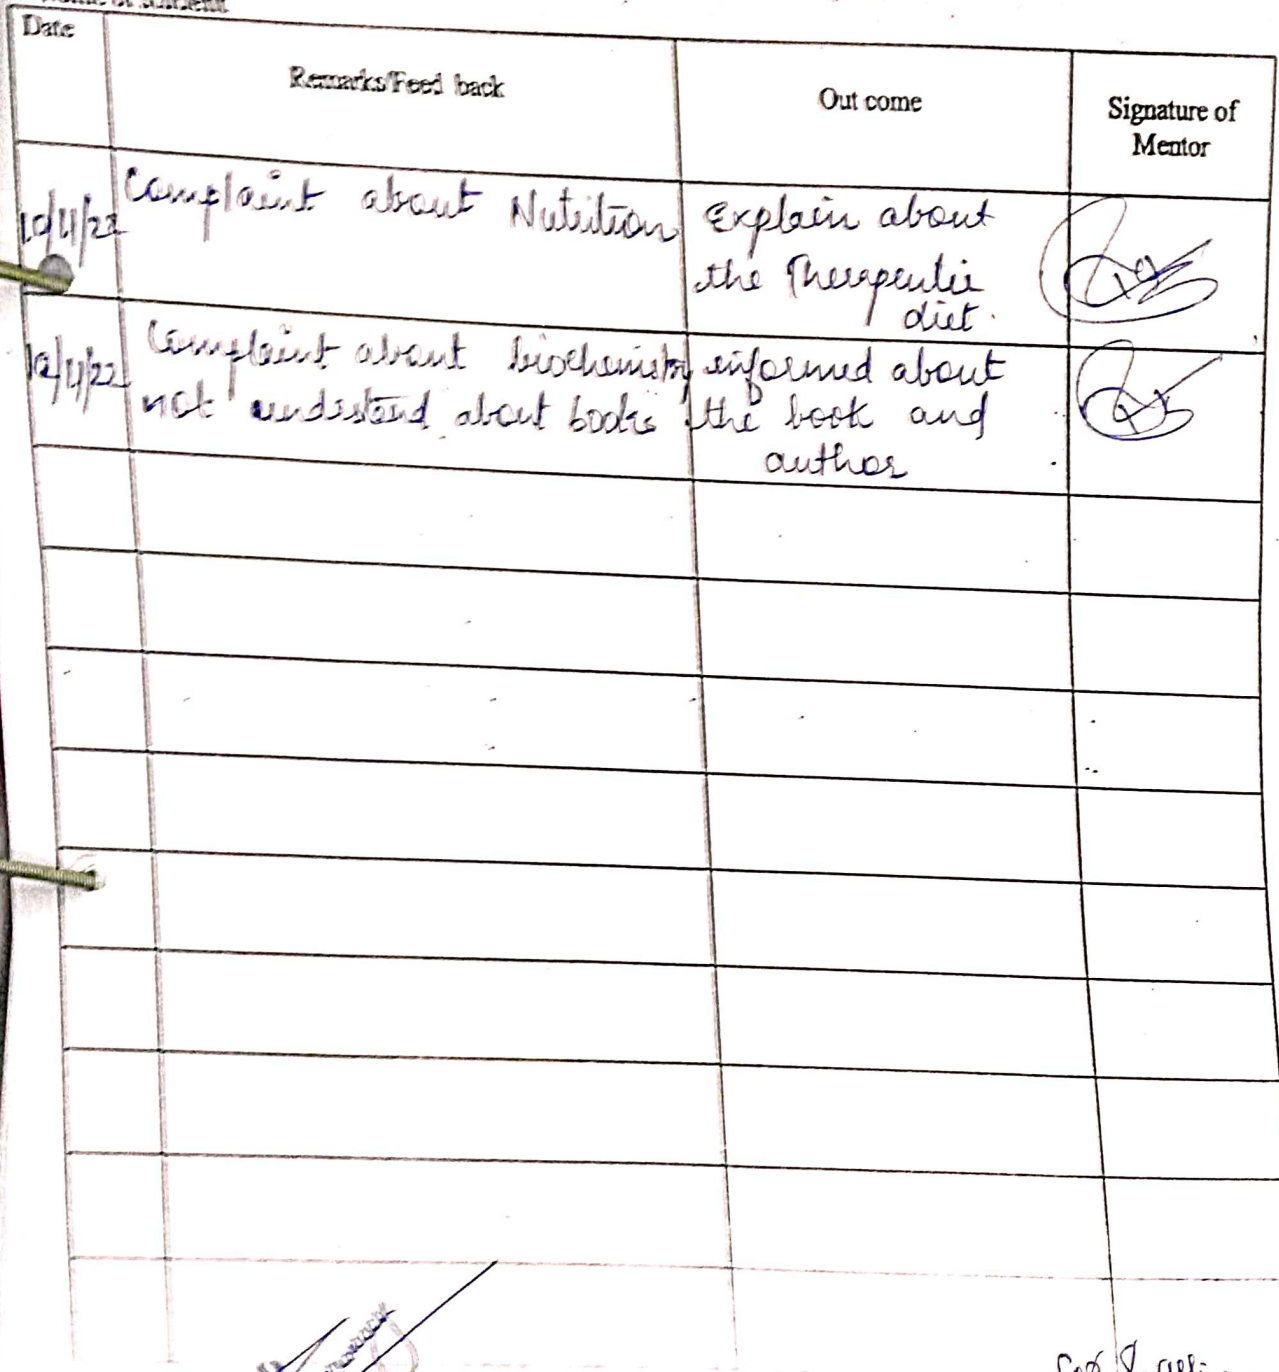 Name of student
Date
Remarks/Feed back
Out come
Signature of
Mentor
10/11/22
Complaint about Nutrition
Explain about
the Therapeutic
diet.
12/11/22
Complaint about biochemistry
not understand about books
informed about
the book and
author